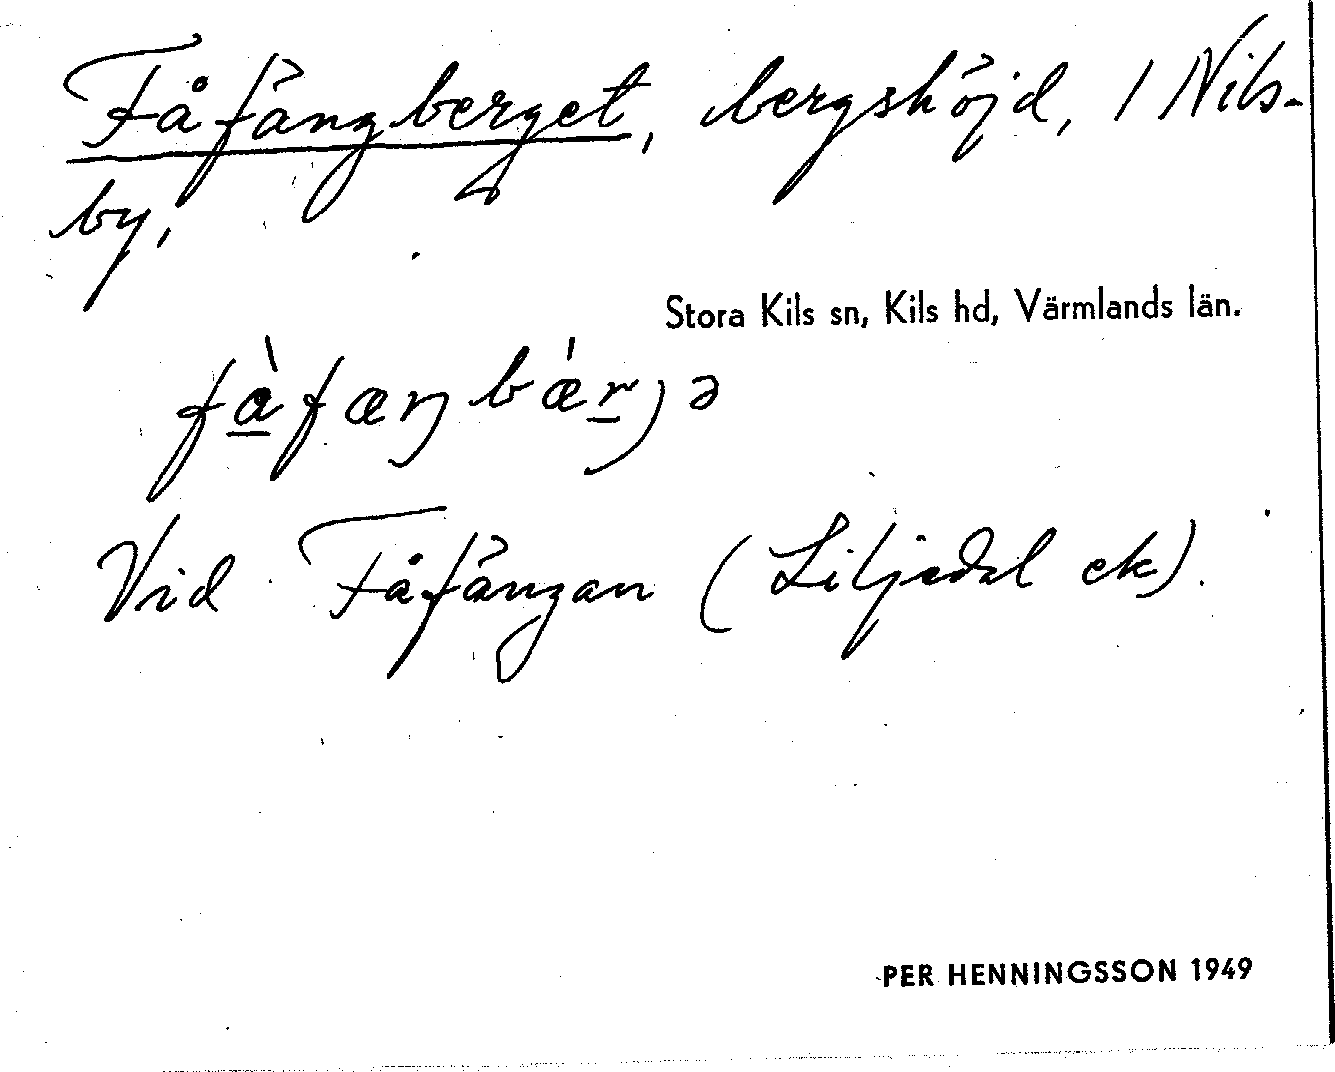 Fåfängberget, bergshöjd, 1 Nils-
by,
Stora Kils sn, Kils hd, Värmlands län.
Vid Fåfängan (Liljedal ek).
PER HENNINGSSON 1949